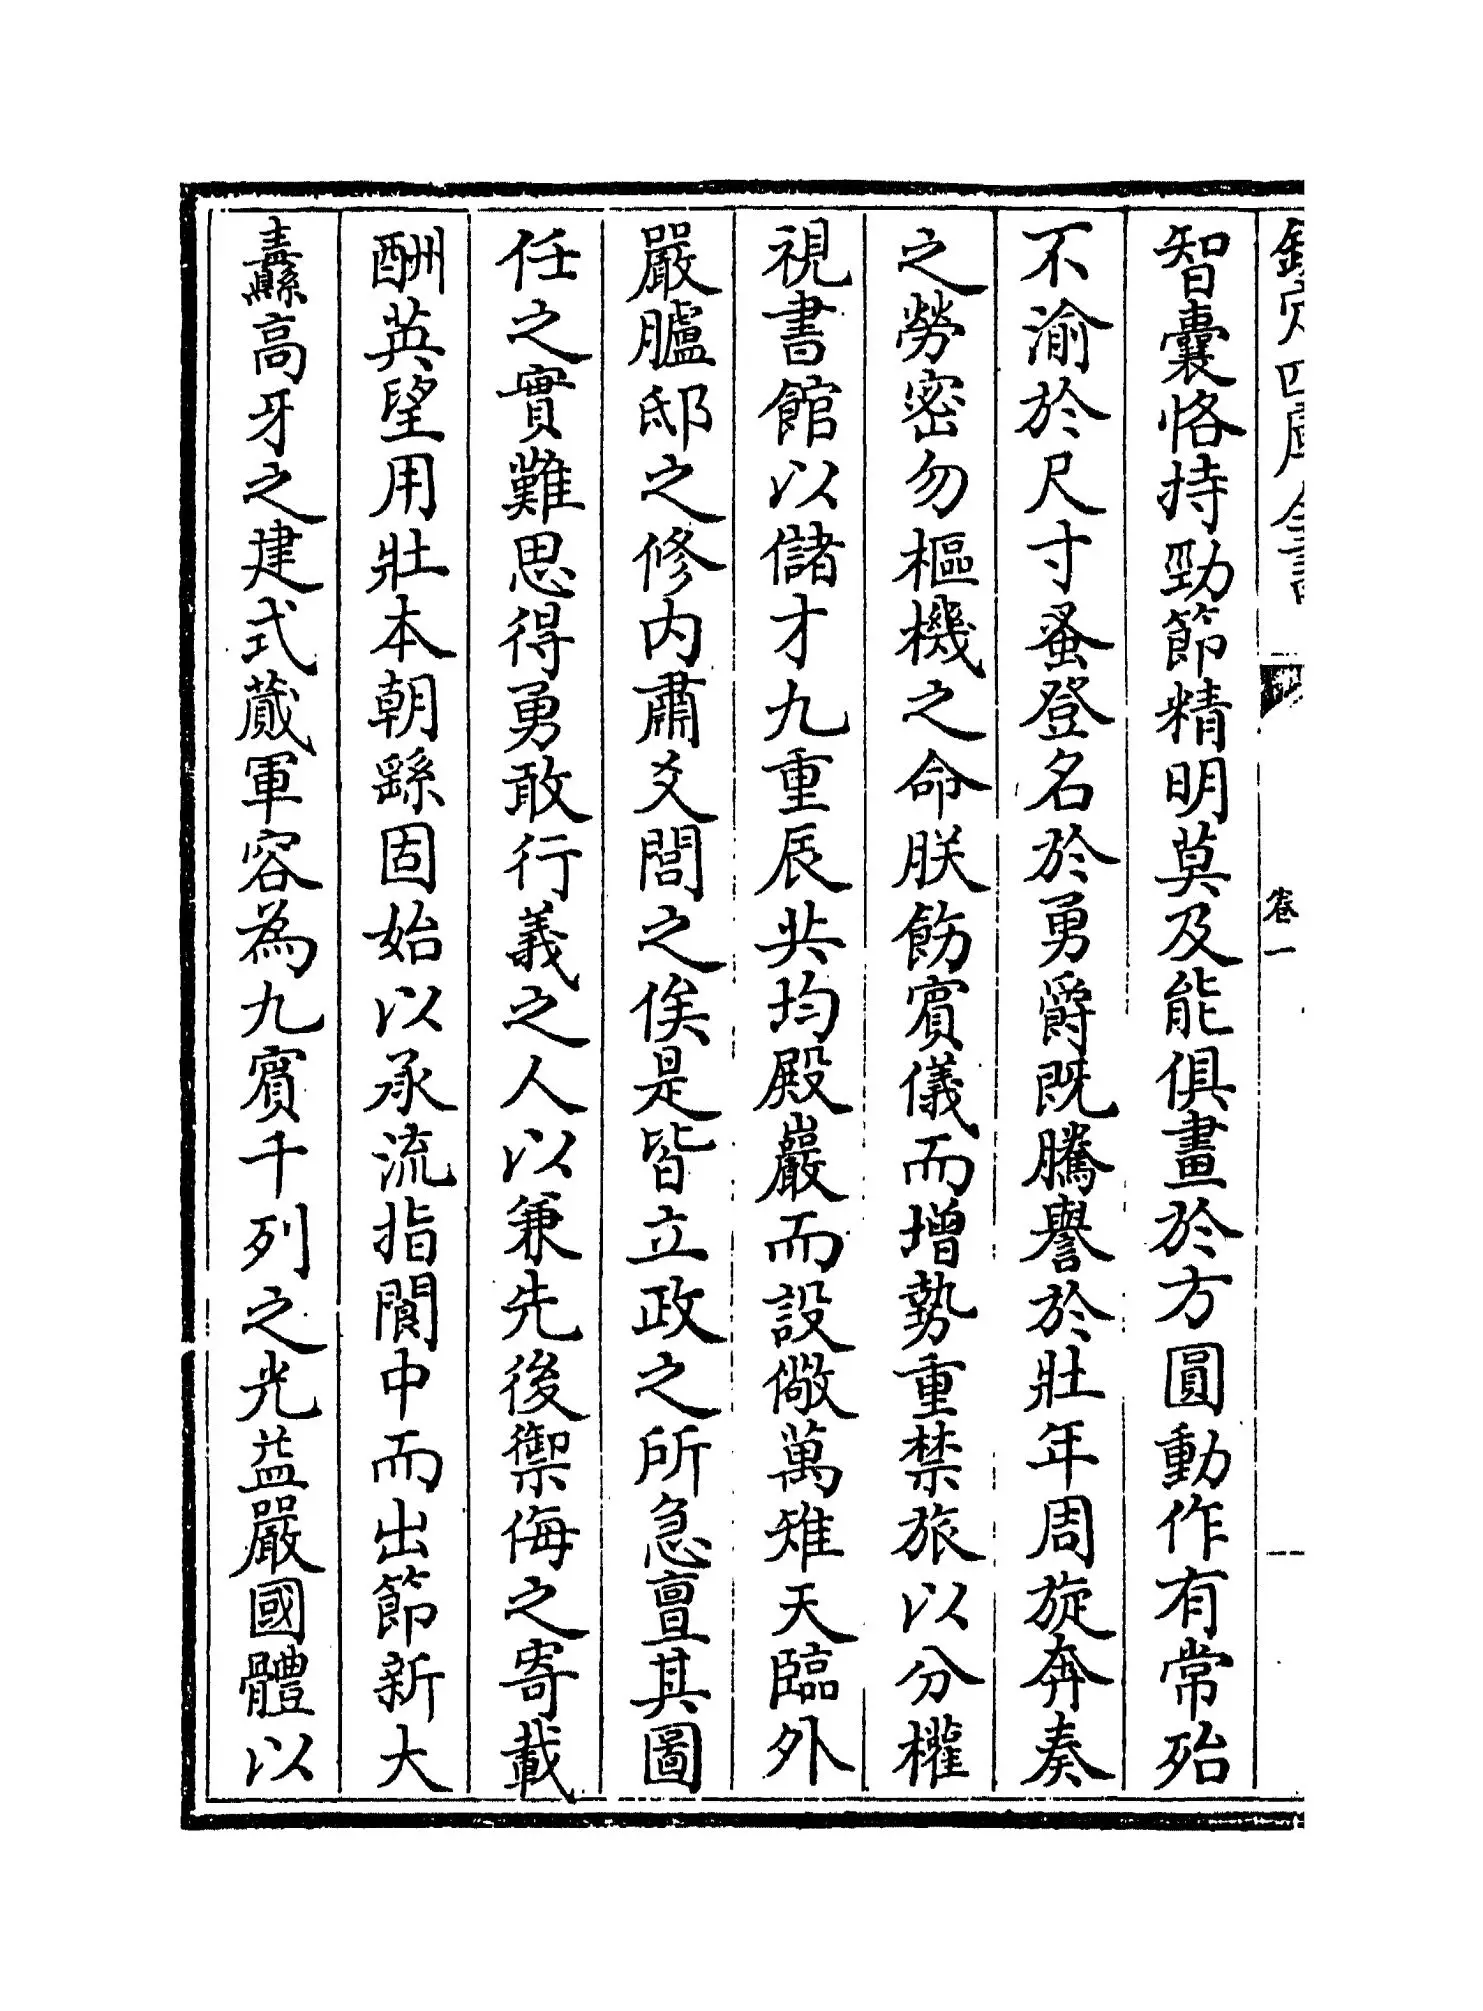 欽定四庫全書
卷一
智囊恪持勁節精明莫及能俱畫於方圓動作有常殆
不渝於尺寸蚤登名於勇爵既騰譽於壯年周旋奔奏
之勞密勿樞機之命朕飭賓儀而增勢重禁旅以分權
視書館以儲才九重辰共均殿巖而設儆萬雉天臨外
嚴臚邸之修内肅爻閭之俟是皆立政之所急亶其圖
任之實難思得勇敢行義之人以兼先後禦侮之寄載
酬英望用壯本朝繇固始以承流指閬中而出節新大
纛高牙之建式蕆軍容為九賓千列之光益嚴國體以